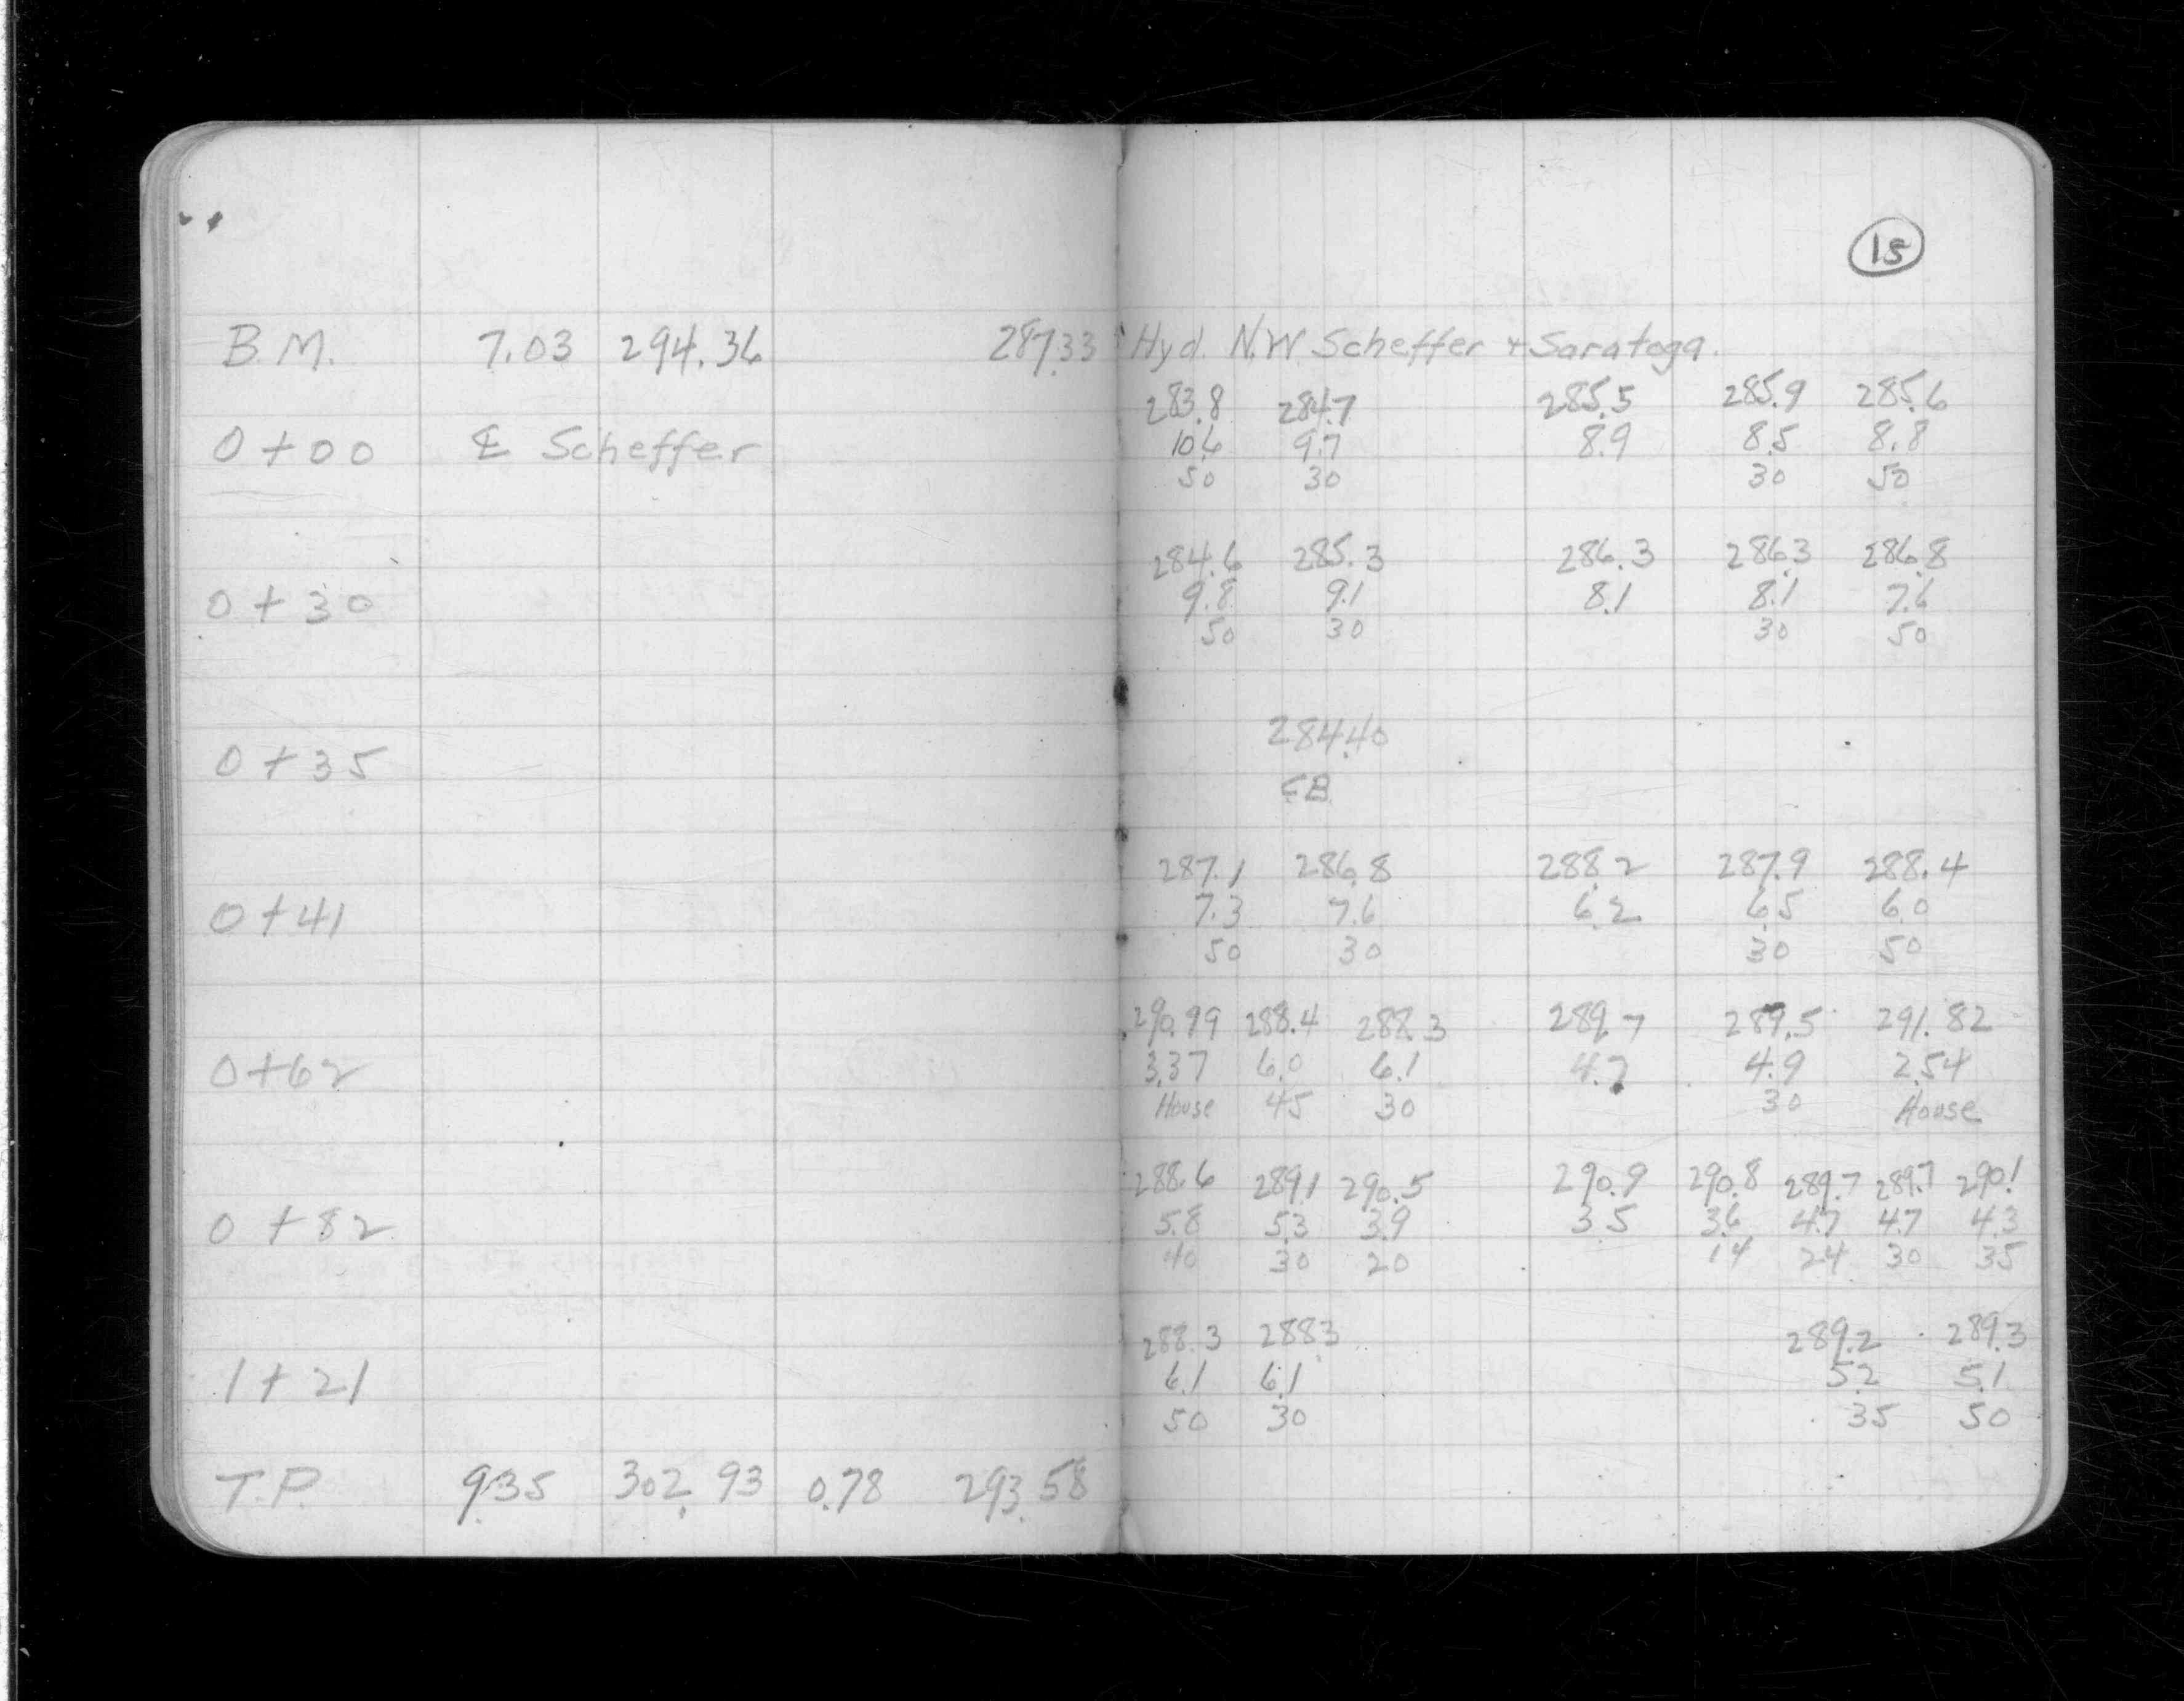 15
B.M. 7.03 294.36 287.33 Hyd. N.W Scheffer + Saratoga.
283.8 284.7 285.5 285.9 285.6
0+00 ℄ Scheffer 10.6 9.7 8.9 8.5 8.8
50 30 30 50
284.6 285.3 286.3 286.3 286.8
0+30 9.8 9.1 8.1 8.1 7.6
50 30 30 50
284.40
0+35
CB
287.1 286.8 288.2 287.9 288.4
0+41 7.3 7.6 6.2 6.5 6.0
50 30 30 50
290.99 288.4 288.3 289.7 289.5 291.82
0+62 3.37 6.0 6.1 4.7 4.9 2.54
House 45 30 30 House
288.6 289.1 290.5 290.9 290.8 289.7 289.7 290.1
0+82 5.8 5.3 3.9 3.5 3.6 4.7 4.7 4.3
40 30 20 14 24 30 35
288.3 288.3 289.2 289.3
1+21 6.1 6.1 5.2 5.1
50 30 35 50
T.P. 9.35 302.93 0.78 293.58